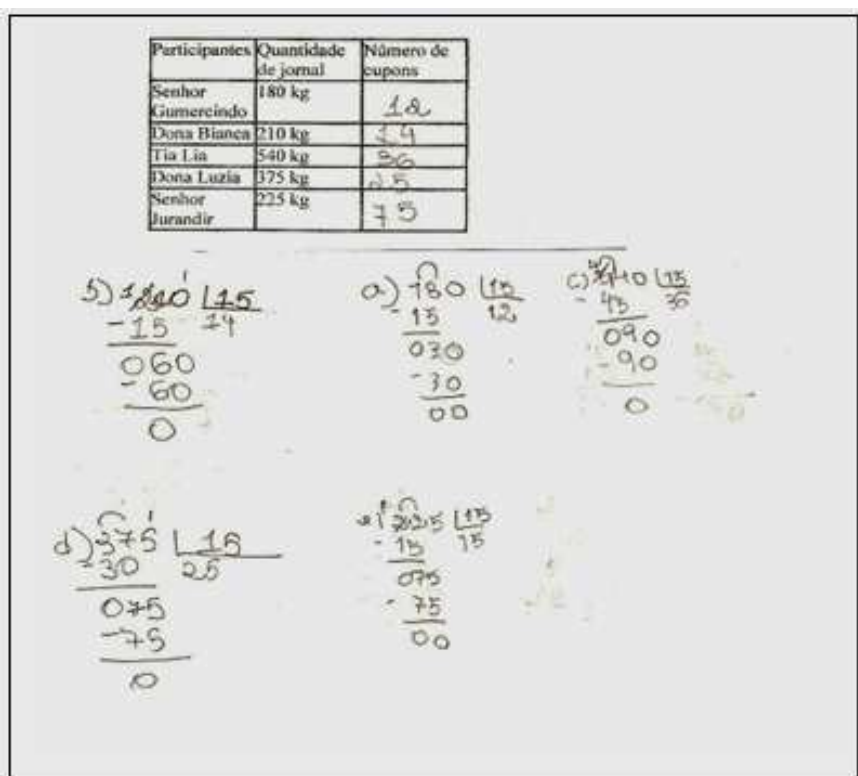 Participantes Quantidade de jornal Número de cupons
Senhor Gumercindo 180 kg 12
Dona Bianca 210 kg 14
Tia Lia 540 kg 36
Dona Luzia 375 kg 25
Senhor Jurandir 225 kg 75
b) 210 15
-15 14
060
-60
0
a) 180 15
-15 12
030
-30
00
c) 540 15
-45 36
090
-90
0
d) 375 15
-30 25
075
-75
0
e) 225 15
-15 15
075
-75
00